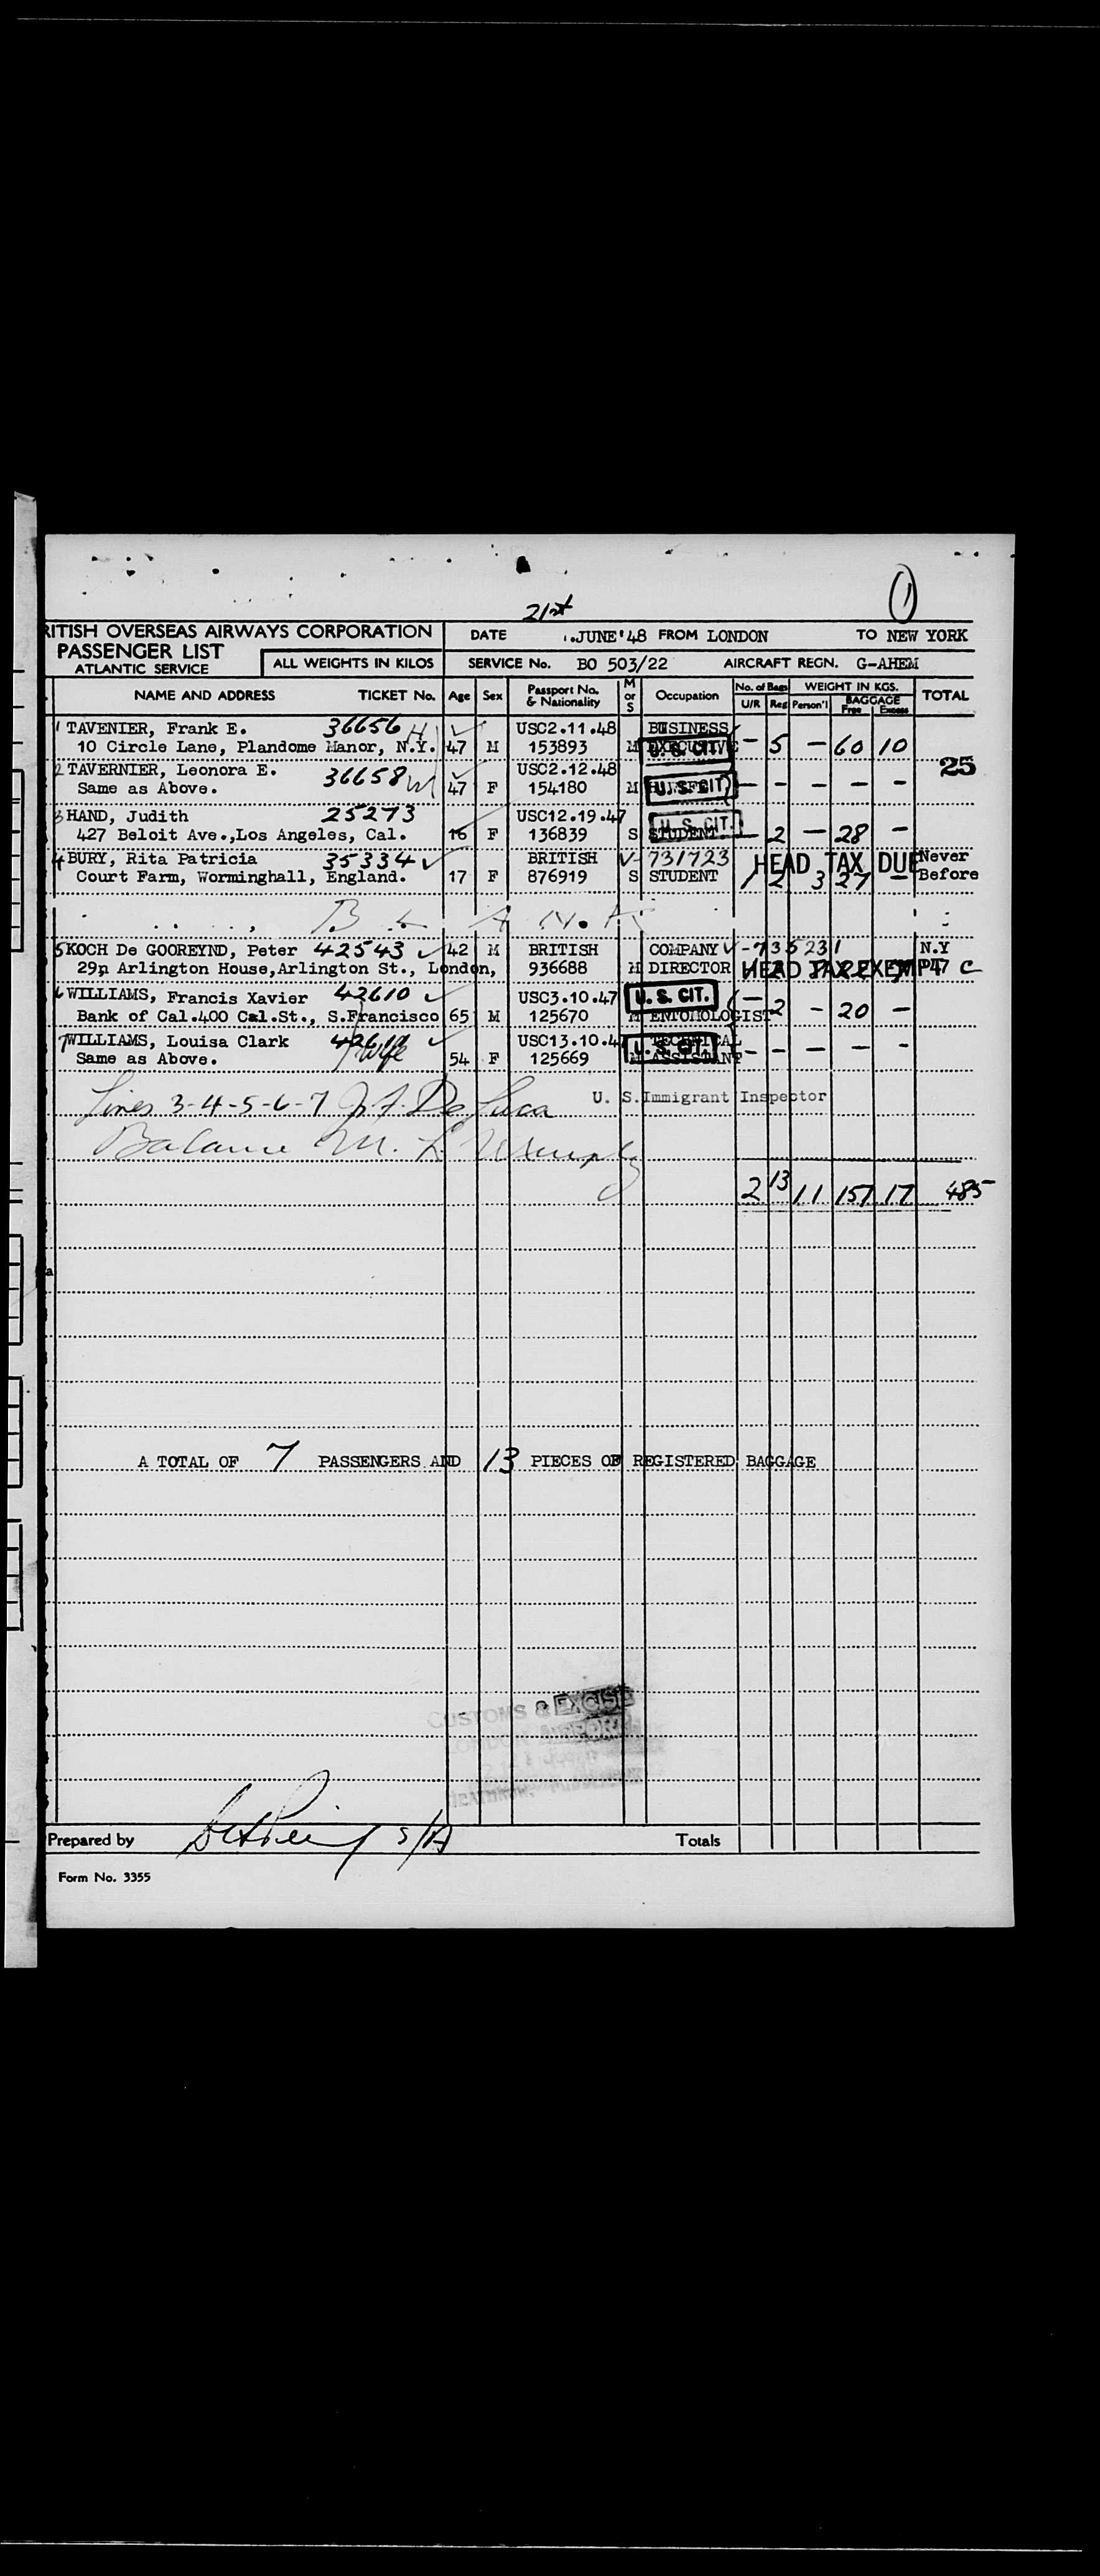 1
21st
RITISH OVERSEAS AIRWAYS CORPORATION
PASSENGER LIST
ATLANTIC SERVICE
ALL WEIGHTS IN KILOS
DATE JUNE '48 FROM LONDON TO NEW YORK
SERVICE No. BO 503/22 AIRCRAFT REGN. G-AHEM
NAME AND ADDRESS TICKET No. Age Sex Passport No. & Nationality M or S Occupation No. of Bags U/R Reg WEIGHT IN KGS. Person'l BAGGAGE Free Excess TOTAL
1 TAVENIER, Frank E. 36656 H USC2.11.48 BUSINESS
10 Circle Lane, Plandome Manor, N.Y. 47 M 153893 M EXECUTIVE U.S. CIT. - 5 - 60 10
25
2 TAVERNIER, Leonora E. 36658 W USC2.12.48
Same as Above. 47 F 154180 M U.S. CIT. - - - - -
3 HAND, Judith 25273 USC12.19.47 U.S. CIT.
427 Beloit Ave.,Los Angeles, Cal. 16 F 136839 S STUDENT - 2 - 28 -
4 BURY, Rita Patricia 35334 BRITISH V-731723 HEAD TAX DUE Never
Court Farm, Worminghall, England. 17 F 876919 S STUDENT 1 2 3 27 - Before
B L A N K
5 KOCH De GOOREYND, Peter 42543 42 M BRITISH COMPANY V-735231 N.Y
29n Arlington House,Arlington St., London, 936688 M DIRECTOR HEAD TAX EXEMPT 47 C
6 WILLIAMS, Francis Xavier 42610 USC3.10.47 U. S. CIT.
Bank of Cal.400 Cal.St., S.Francisco 65 M 125670 M ENTOMOLOGIST - 2 - 20 -
7 WILLIAMS, Louisa Clark wife USC13.10.47 TECHNICAL
Same as Above. 54 F 125669 M ASSISTANT U. S. CIT. - - - - -
Lines 3-4-5-6-7 J. F. De Luca U. S. Immigrant Inspector
Balance M. L.
2 13 11 157 17 485
A TOTAL OF 7 PASSENGERS AND 13 PIECES OF REGISTERED BAGGAGE
CUSTOMS & EXCISE
LONDON AIRPORT
Prepared by S/A Totals
Form No. 3355